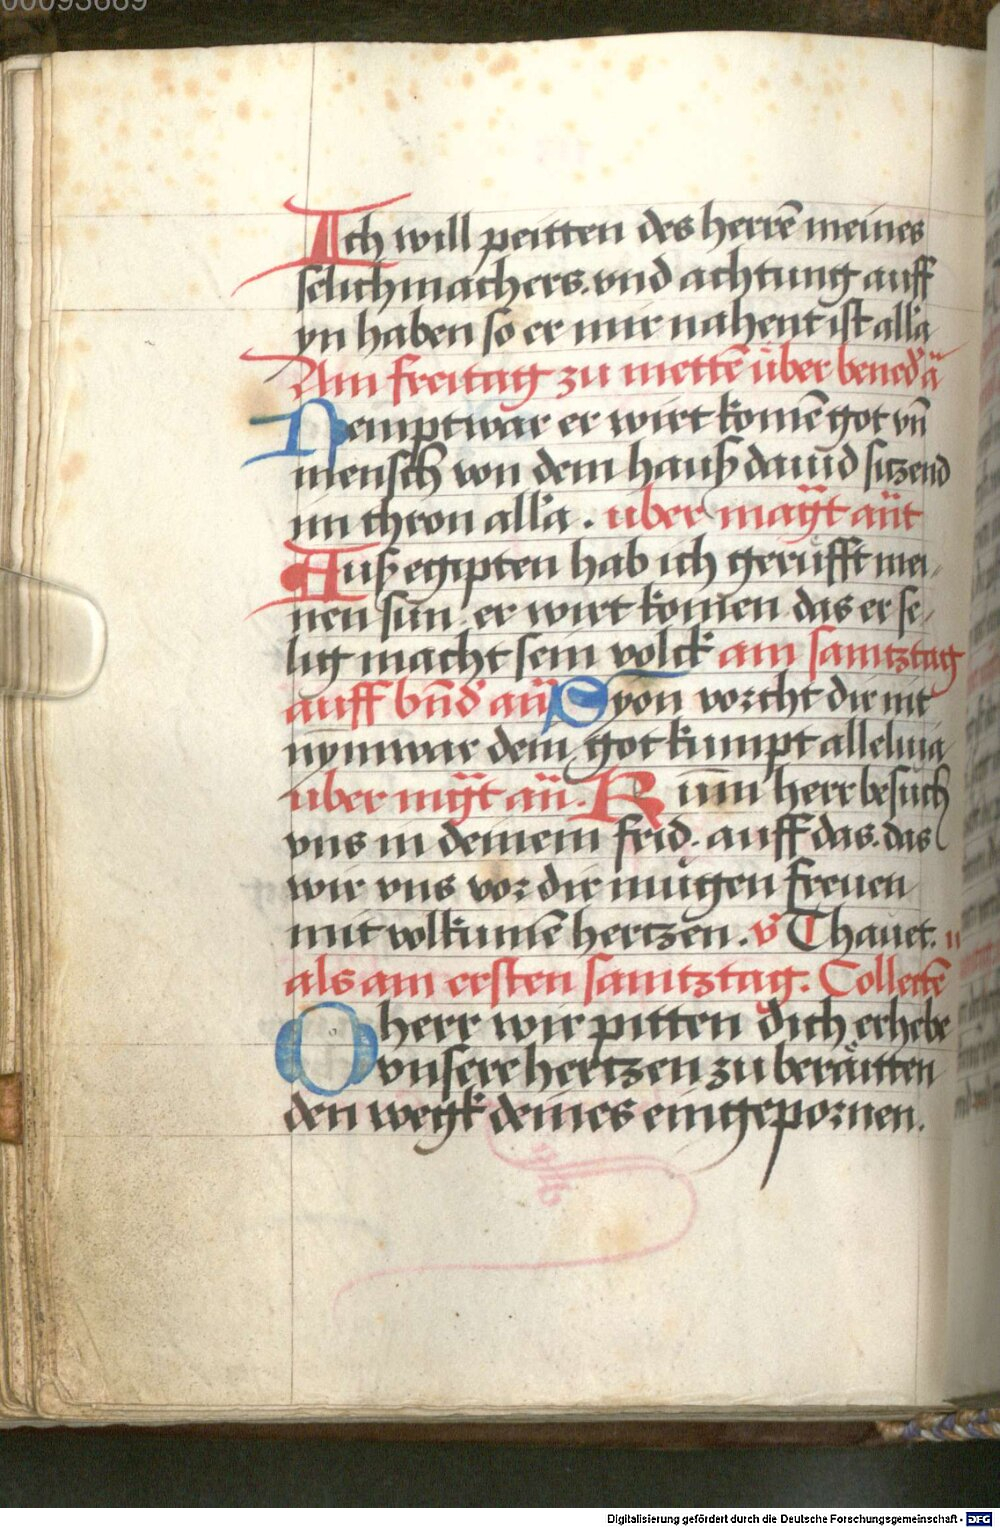 00093669
Ich will peitten des herrē meines
selichmachers. vnd achtung auff
yn haben so er mir nahent ist alla
Am freitag zu mettē über bened' ā
Nempt war er wirt komē got vn̄
mensch von dem hauß dauid sitzend
im thron alla . über mag̃t aūt
Auß egipten hab ich gerüfft mei,
nen sun . er wirt komen das er se,
lig macht sein volck am samtztag
auff bn̄d' aū Syon vorcht dir nit
nym war dein got kumpt alleluia
über mg̃t aū . Kum̄ herr besuch
vns in deinem frid . auff das . das
wir vns vor dir mügen freuen
mit volkumē hertzen . v̄ Thauet . u
als am ersten samtztag . Collectē
O herr wir pitten dich erhebe
vnsere hertzen zu beräitten
den wegk deines eingepornen .
Digitalisierung gefördert durch die Deutsche Forschungsgemeinschaft - DFG